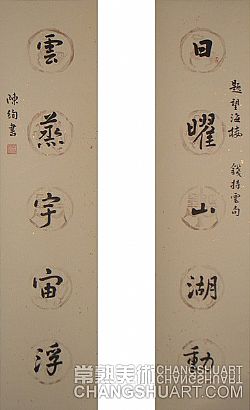 題望海樓 錢持雲句
日曜山湖動
雲蒸宇宙浮
陳绚書
常熟美術
CHANGSHUART.COM
CHANGSHUART.COM